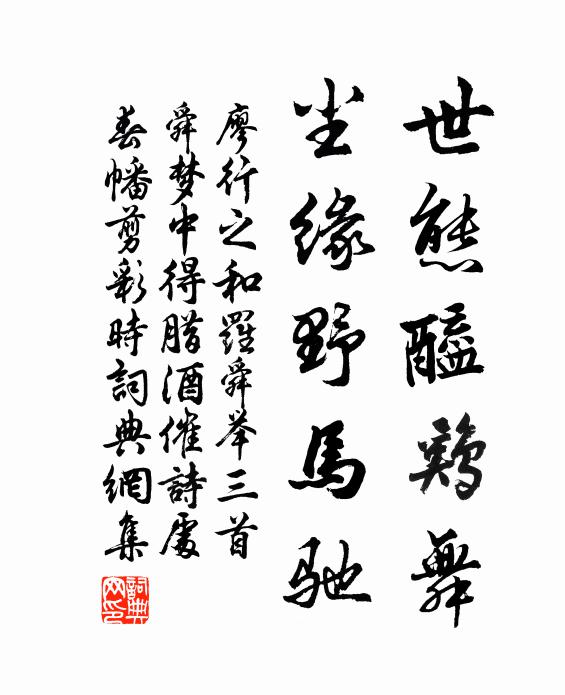 世態醯鷄舞
尘緣野馬馳
廖行之和羅舜举三首
舜梦中得腊酒催詩處
春幡剪彩時詞典網集
詞典
网印